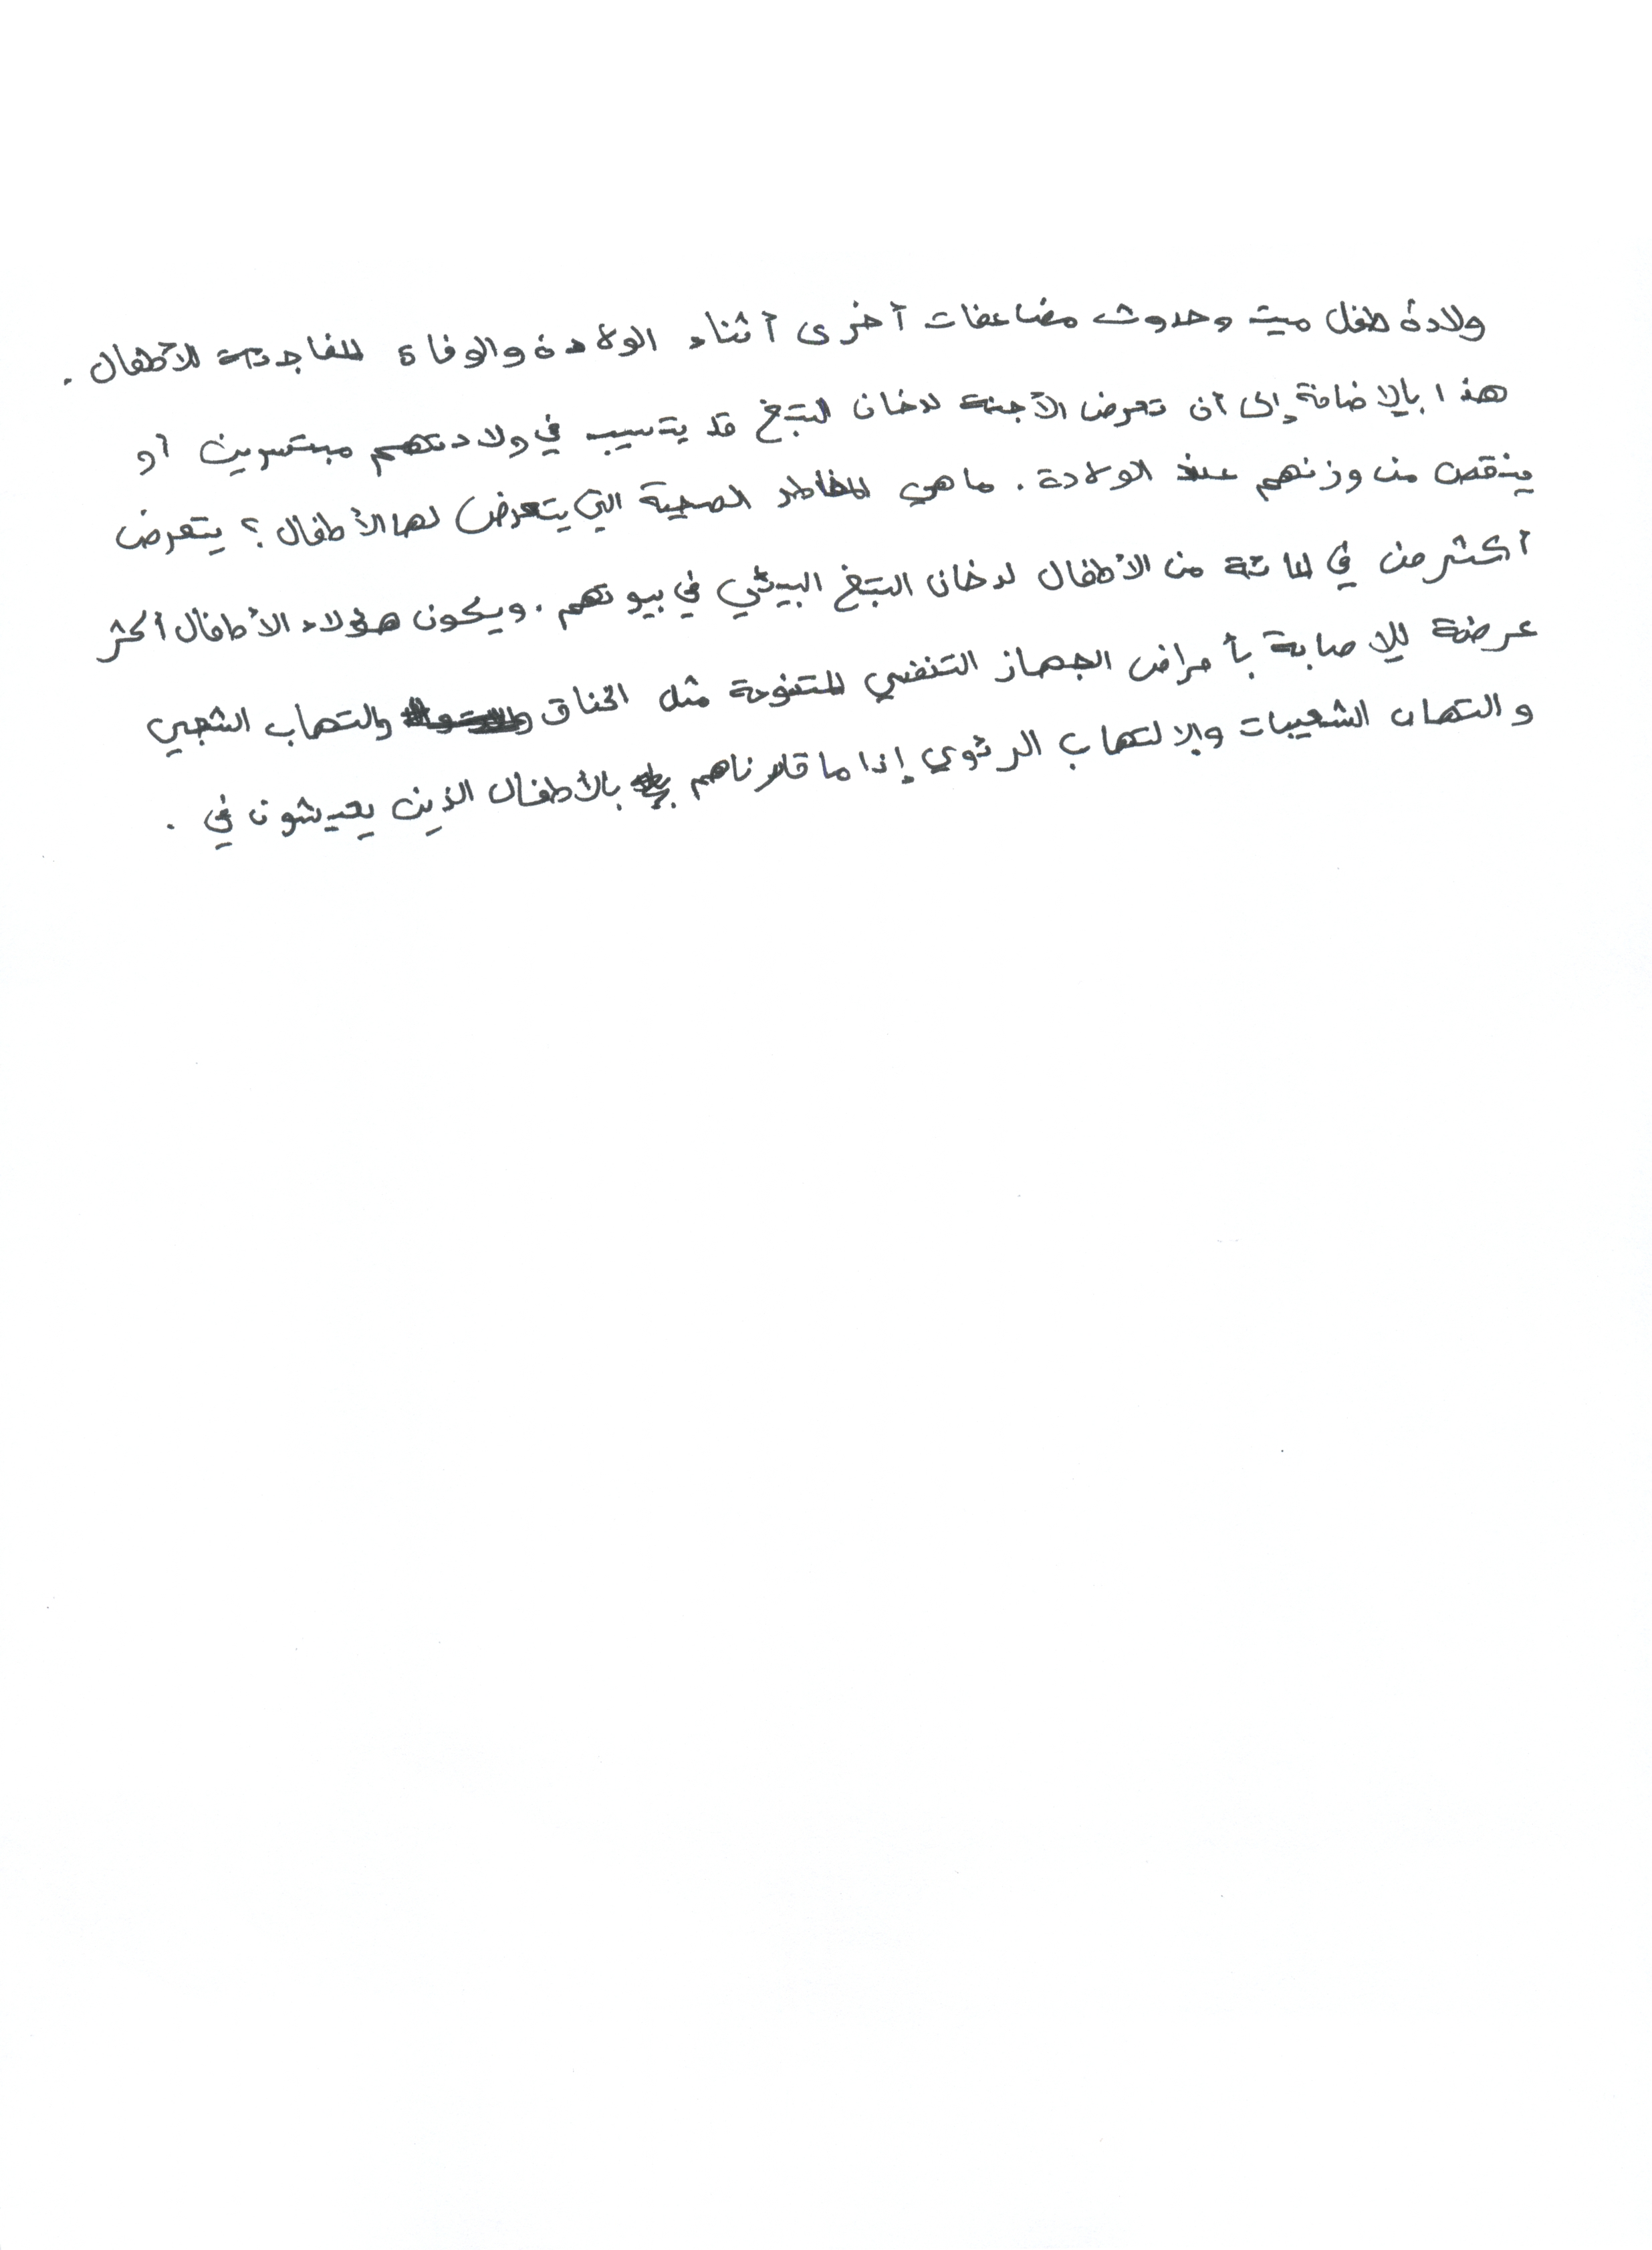 ولادة طفل ميت وحدوث مضاعفات أخرى أثناء الولادة والوفاة المفاجئة للأطفال .
هذا بالإضافة إلى أن تعرض الأجنة لدخان التبغ قد يتسبب في ولادتهم مبتسرين أو
ينقص من وزنهم عند الولادة . ما هي المخاطر الصحية التي يتعرض لها الأطفال ؟ يتعرض
أكثر من في المائة من الأطفال لدخان التبغ البيئي في بيوتهم . ويكون هؤلاء الأطفال أكثر
عرضة للإصابة بأمراض الجهاز التنفسي المتنوعة مثل الخناق والتهاب الشعبي
والتهاب الشعيبات والالتهاب الرئوي إذا ما قارناهم بالأطفال الذين يعيشون في .